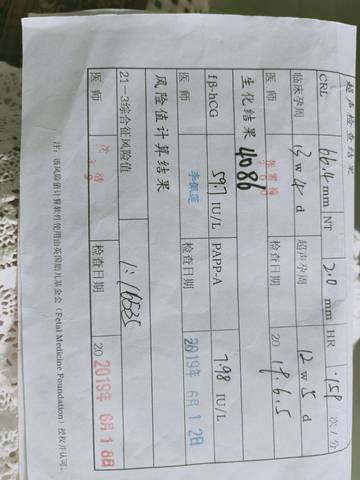 超声检查结果
CRL 66.4 mm NT 2.0 mm HR 159 次/分
临床孕周 13 w 4 d 超声孕周 12 w 5 d
医师 检查日期 2019.6.5
生化结果 4086
fβ-hCG 59.7 IU/L PAPP-A 7.98 IU/L
医师 李佩莲 检查日期 2019年6月12日
风险值计算结果
21-3综合征风险值 1:16535
医师 检查日期 20 2019年6月18日
注:该风险值计算软件使用由英国胎儿基金会(Fetal Medicine Foundation)授权并认可。